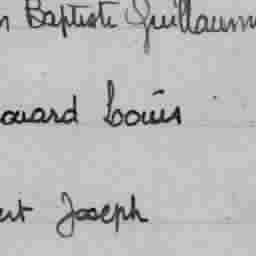 n Baptiste Guillaum
ouard Louis
ert Joseph